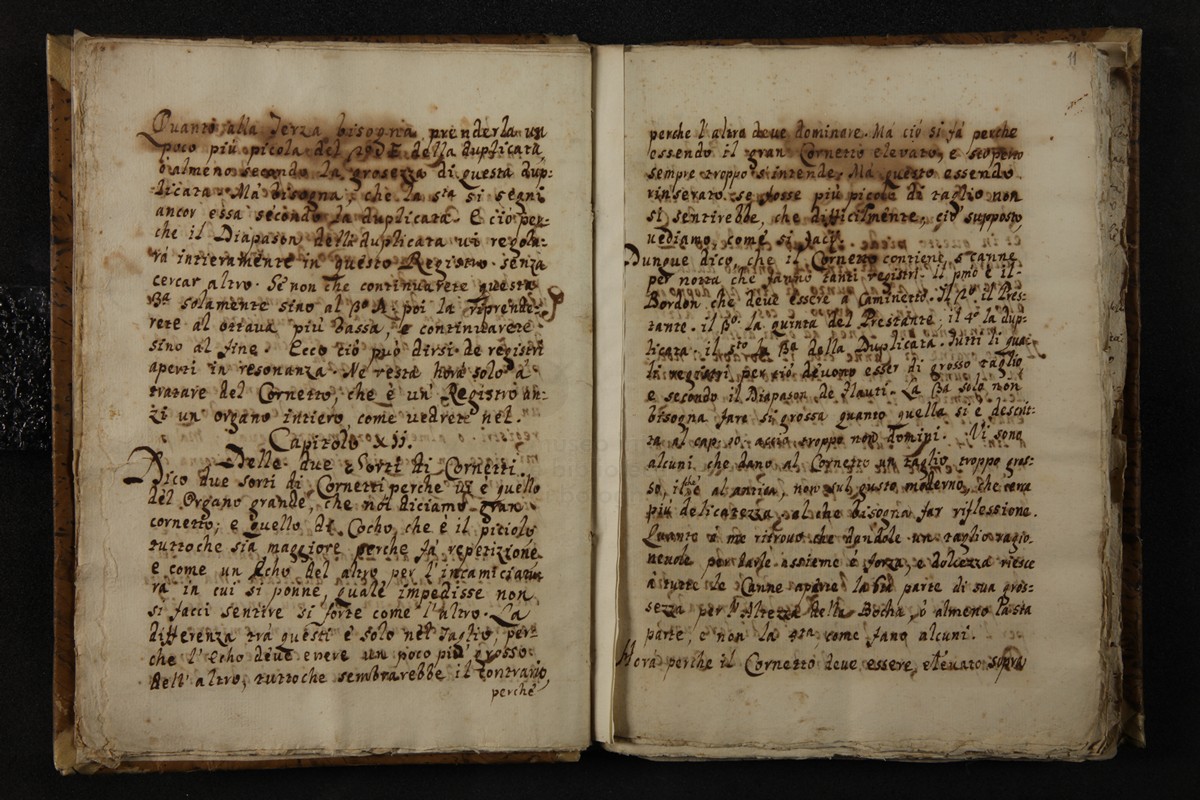 Quanto alla Terza bisogna prenderla un
poco più picola del della duplicata,
ò almeno secondo la grosezza di questa dup-
licata. Mà bisogna, che la 5ta si segni
ancor essa secondo la duplicata. E ciò per-
che il Diapason dell duplicata vi regola-
rà intieramente in questo Registro. senza
cercar altro. Se non che continuarete questa
3za solamente sino al A. poi la riprende-
rete al ottava più bassa, e continuarete
sino al fine. Ecco ciò può dirsi de registri
aperti in resonanza. Ne resta hora solo à
tratare del Cornetto, che è un' Registro an-
zi un organo intiero, come vedrete nel.
Capitolo XII.
Delle due Sorti di Cornetti.
Dico due sorti di Cornetti perche è quello
del Organo grande, che noi diciamo gran
cornetto; e quello di Echo, che è il piciolo
tuttoche sia maggiore perche fà repetizione
e come un Echo del altro per l'incamiciatu-
ra in cui si ponne, quale impedisse non
si facci sentire si forte come l'altro. La
differenza trà questi è solo nel Taglio, per-
che l'Echo deve evere un poco più grosso
dell' altro, tuttoche sembrarebbe il contrario,
perche
11
perche l'altro deve dominare. Mà ciò si fà perche
essendo il gran Cornetto elevato, e scoperto
sempre troppo s'intende; Mà questo essendo
rinserato se fosse più picolo di taglio non
si sentirebbe, che difficilmente, ciò supposto,
vediamo come si facij.
Dunque dico, che il Cornetto contiene 5 Canne
per notta che fanno tanti registri. Il pmo è il
Bordon che deve essere à Caminetto. Il 2do. il Pres-
tante. il 3o. la quinta del Prestante. il 4o la dup-
licata. il 5to la 3za della Duplicata. Tutti li qua-
li registri per ciò devono esser di grosso taglio
e secondo il Diapason de flauti. La 3za sola non
bisogna fare si grossa quanto quella si è descrit-
ta al cap: 10. acciò troppo non domini. Vi sono
alcuni che dano al Cornetto un taglio troppo gros-
so, il che è al antica, non sul gusto moderno, che cerca
più delicatezza, al che bisogna far riflessione.
Quanto à me ritrovo che dandole un taglio ragio-
nevole per darle assieme è forza, e dolcezza riesce
à tutte le Canne aparte la parte di sua gros-
sezza per l'Altezza della Bocha, ò almeno la 5ta
parte, e non la 4ta come fano alcuni.
Hora perche il Cornetto deve essere, elevato sopra